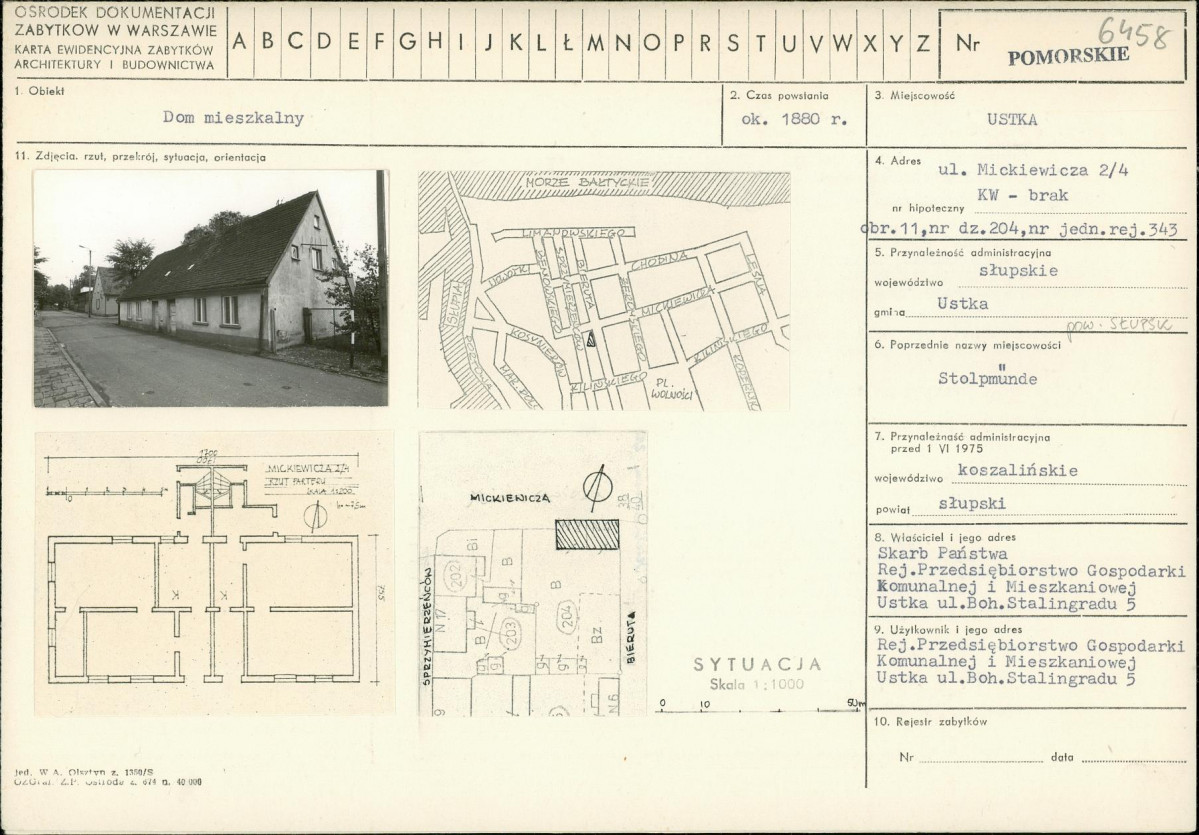 OŚRODEK DOKUMENTACJI
ZABYTKÓW W WARSZAWIE
KARTA EWIDENCYJNA ZABYTKÓW
ARCHITEKTURY I BUDOWNICTWA
A B C D E F G H I J K L Ł M N O P R S T U V W X Y Z
Nr
6458
POMORSKIE
1. Obiekt
Dom mieszkalny
2. Czas powstania
ok. 1880 r.
3. Miejscowość
USTKA
11. Zdjęcia. rzut, przekrój, sytuacja, orientacja
MORZE BAŁTYCKIE
LIMANOWSKIEGO
CHOPINA
LEŚNA
BIERUTA
MICKIEWICZA
SŁUPIA
KOSYNIERÓW
KILIŃSKIEGO
KILIŃSKIEGO
PL.
WOLNOŚCI
MICKIEWICZA 2/4
RZUT PARTERU
SKALA 1:200
K K
MICKIEWICZA
SPRZYMIERZEŃCÓW
BIERUTA
Bi
B
B
B
B
Bz
202
203
204
N 17
N 6
SYTUACJA
Skala 1:1000
0 10 50m
4. Adres
ul. Mickiewicza 2/4
KW - brak
nr hipoteczny
obr.11,nr dz.204,nr jedn.rej.343
5. Przynależność administracyjna
województwo słupskie
gmina Ustka
pow. SŁUPSK
6. Poprzednie nazwy miejscowości
Stolpmünde
7. Przynależność administracyjna
przed 1 VI 1975
województwo koszalińskie
powiat słupski
8. Właściciel i jego adres
Skarb Państwa
Rej.Przedsiębiorstwo Gospodarki
Komunalnej i Mieszkaniowej
Ustka ul.Boh.Stalingradu 5
9. Użytkownik i jego adres
Rej.Przedsiębiorstwo Gospodarki
Komunalnej i Mieszkaniowej
Ustka ul.Boh.Stalingradu 5
10. Rejestr zabytków
Nr data
jed. W.A. Olsztyn z. 1350/S
OZGraf. Z.P. Ostróda z. 674 n. 40 000